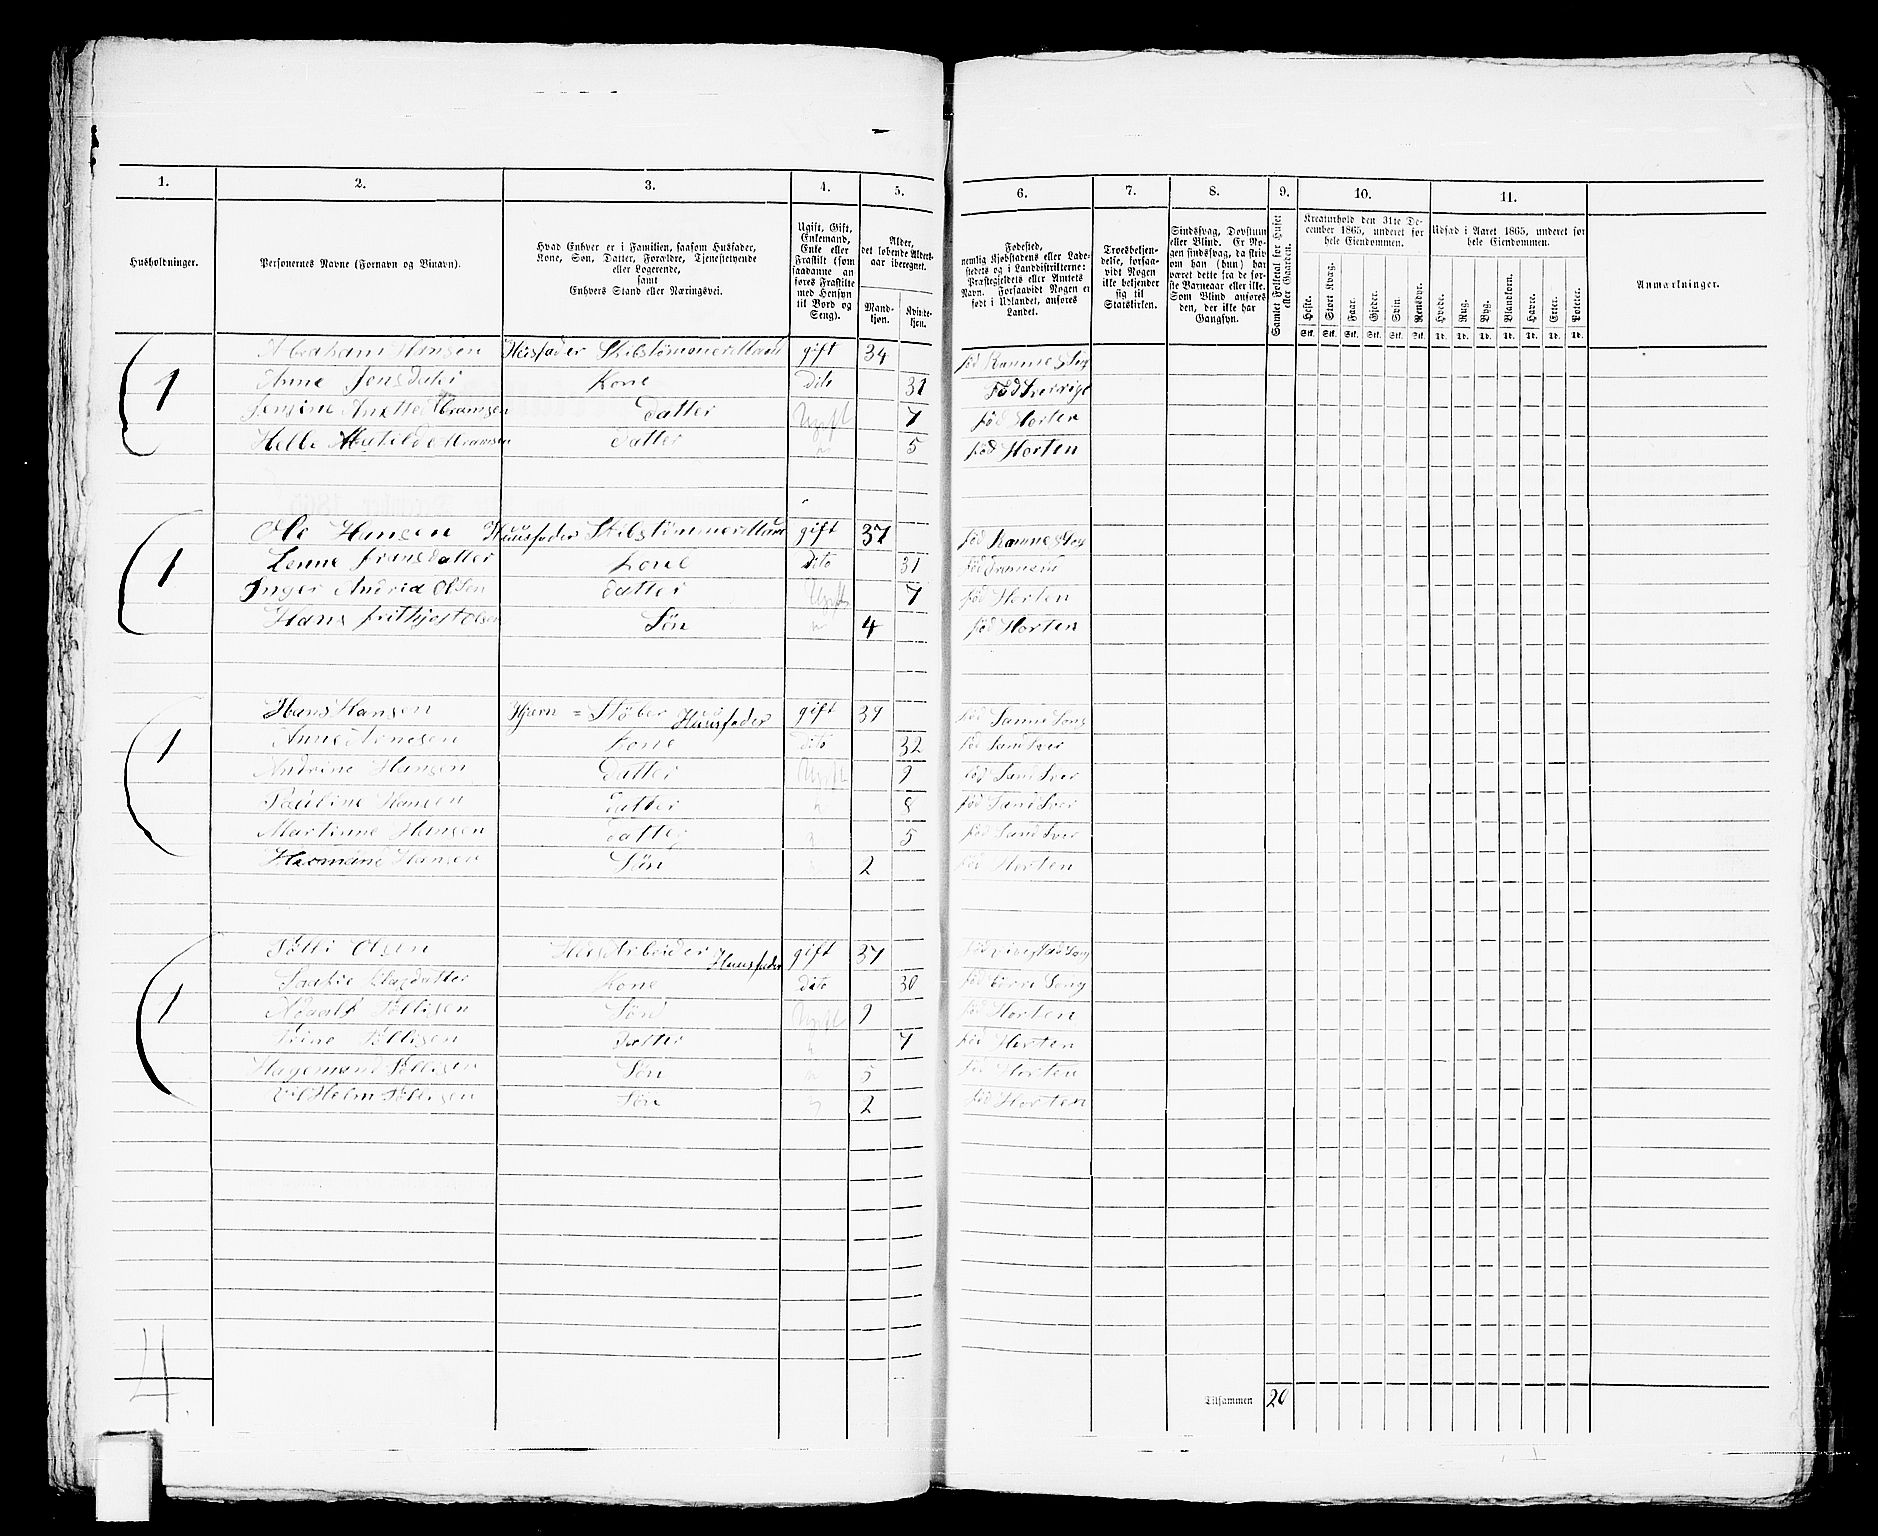 1. 2. 3. 4. 5. 6. 7. 8. 9. 10. 11.
Husholdninger.
Personernes Navne (Fornavn og Tilnavn).
Hvad Enhver er i Familien, saasom Husfader, Kone, Søn, Datter, Forældre, Tjenestetyende eller Logerende, samt Enhvers Stand eller Næringsvei.
Ugift, Gift, Enkemand, Enke eller Fraskilt (som saadanne anføres Fraskilte med Hensyn til Bord og Seng).
Alder, det løbende Aldersaar iberegnet.
Mandkjøn. Kvindekjøn.
Fødested, nemlig Kjøbstadens eller Ladestedets og i Landdistrikterne: Præstegjeldets eller Amtets Navn. Forsaavidt Nogen er født i Udlandet, anføres Landet.
Troesbekjendelse, forsaavidt Nogen ikke bekjender sig til Statskirken.
Sindssvag, Døvstum eller Blind. Er Nogen sindssvag, da skrives om han (hun) har været dette fra de første Barneaar eller ikke. Som Blind anføres den, der ikke har Gangsyn.
Samlet Folketal for Huset eller Gaarden.
Kreaturhold den 31te December 1865, underet for hele Eiendommen.
Heste. Stort Kvæg. Faar. Gjeder. Svin. Rensdyr.
Udsæd i Aaret 1865, underet for hele Eiendommen.
Hvede. Rug. Byg. Blandkorn. Havre. Erter. Poteter.
Anmærkninger.
Abraham Hansen Huusfader Skibstømmermand gift 34
1 Anne Jensdater Kone Dito 31 Fød Sverrige
Jensine Anette Abramsen Datter Ugift 7 fød Horten
Helle Matilde Abramsen Datter " 5 fød Horten
Ole Hansen Huusfader Skibstømmermand gift 37
1 Lenne Fransdatter Kone Dito 31
Inger Andria Olsen Datter Ugift 7 fød Horten
Hans Frithjof Olsen Søn " 4 fød Horten
Hans Hansen Hjærn = Støber Huusfader gift 39
1 Anne Arnesen Kone dito 32 fød Sandsver
Andrine Hansen Datter Ugift 9 fød Sandsver
Pauline Hansen Datter " 8 fød Sandsver
Martinne Hansen Datter " 5 fød Sandsver
Hansen Søn " 2 fød Horten
Olsen Arbeider Huusfader gift 37
Kone dito 30 fød Borre
1 Søn Ugift 9 fød Horten
Datter " 7 fød Horten
Søn " 5 fød Horten
Vilhelm Søn " 2 fød Horten
4
Tilsammen 20